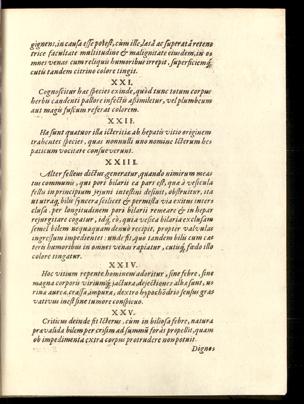 gignens, in causa esse potest, cùm ille, lata ac superata reten
trice facultate multitudine & malignitate eiusdem, in om
omnes venas cum reliquis humoribus irrepit, superficiemq́;
cutis tandem citrino colore tingit.
XXI.
Cognoscitur hæc species exinde, quòd tunc totum corpus
herbis candenti pallore infectis asimiletur, vel plumbeum
aut magis fuscum referat colorem.
XXII.
Hæ sunt quatuor illæ icteritiæ ab hepatis vitio originem
trahentes species, quas nonnulli uno nomine Icterum hes
paticum vocitare consueverunt.
XXIII.
Alter felleus dictus, generatur, quando nimirum mea
tus communis, qui pori bilarii ea pars est, quæ à vesicula
fellis in principium jejuni intestini desinit, obstruitur, ita
ut utraq́; bilis syncera scilicet & permista via exitus inters
clusa, per longitudinem pori bilarii remeare & in hepar
rejurgitare cogatur, idq́; eò, quia vesica bilaria exclusam
semel bilem nequaquam denuò recipit, propter valvulas
ingressum impedientes: unde fit, quo tandem bilis cum cæ
teris humoribus in omnes venas rapiatur, cutisq́; fœdo illo
colore tingatur.
XXIV.
Hoc vitium repente hominem adoritur, sine febre, sine
magna corporis viriumq́; jactura, dejectiones albæ sunt, us
rina aurea, crassa, impura, dextro hypochōdrio sensus gras
vativus inest sine tumore conspicuo.
XXV.
Criticus deinde fit Icterus, cum in biliosa febre, natura
prævalida bilem per crisim ad summū foràs propellit, quam
ob impedimenta extra corpus protrudere non potuit.
Dignos